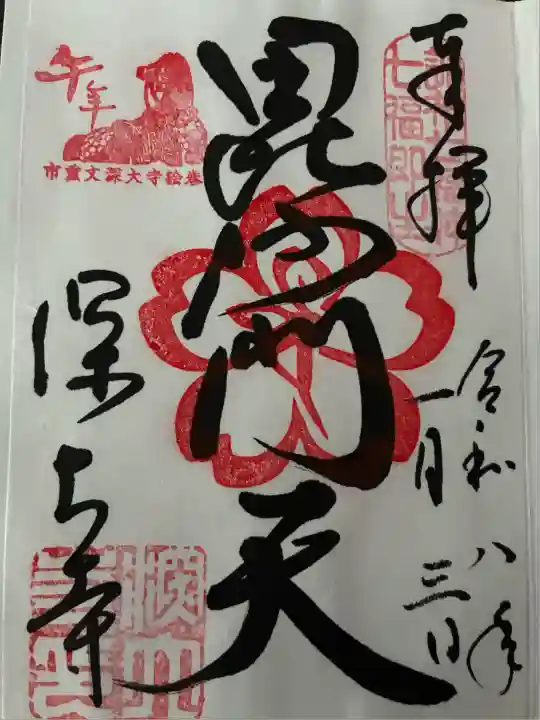 奉拝
令和八年
一月三日
毘沙門天
深大寺
午年
市重文深大寺絵巻